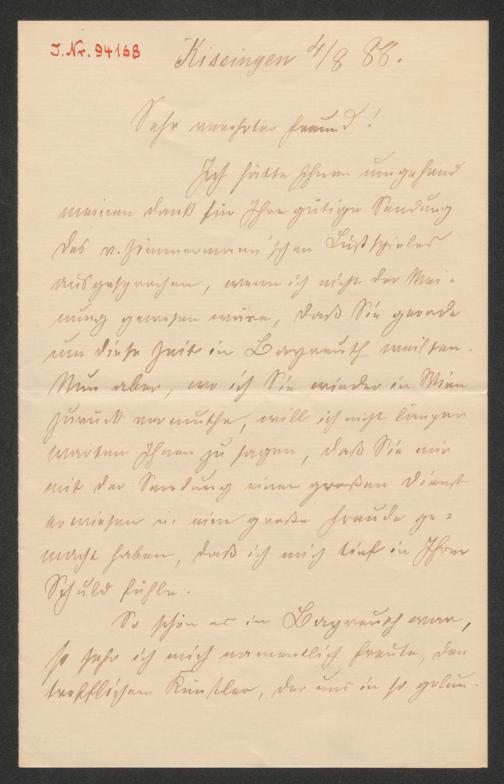 J.Nr. 94168
Kissingen 4/8 88.
Sehr verehrter Freund!
Ich hätte Ihnen umgehend
meinen Dank für Ihre gütige Sendung
des v. Zimmermann'schen Lustspieles
ausgesprochen, wenn ich nicht der Mei-
nung gewesen wäre, daß Sie gerade
um diese Zeit in Bayreuth weilten.
Nun aber, wo ich Sie wieder in Wien
zurück vermuthe, will ich nicht länger
warten Ihnen zu sagen, daß Sie mir
mit der Sendung einen großen Dienst
erwiesen u. eine große Freude ge-
macht haben, daß ich mich tief in Ihrer
Schuld fühle.
So schön es in Bayreuth war,
so sehr ich mich namentlich freute, den
trefflichen Künstler, der uns in so gelun-